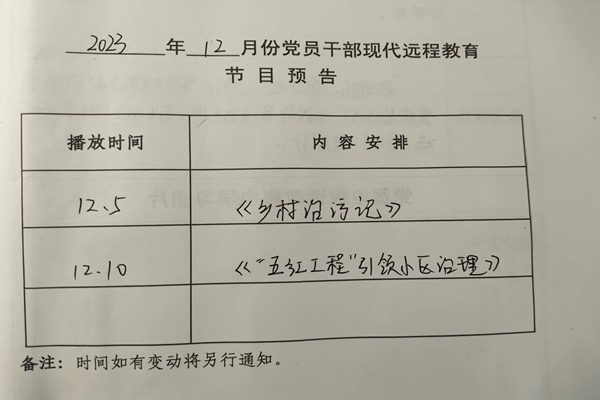 2023 年 12 月份党员干部现代远程教育
节目预告
播放时间 内容安排
12.5 《乡村治污记》
12.10 《“五红工程”引领小区治理》
备注：时间如有变动将另行通知。